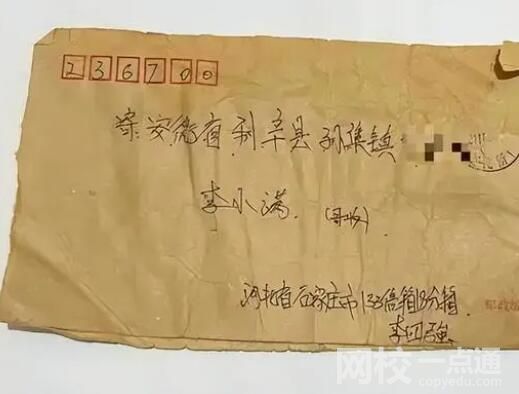 236700
寄安徽省利辛县孙集镇
李小满 (哥收)
河北省石家庄市133信箱18分箱
李四强
网校一点通
copyedu.com